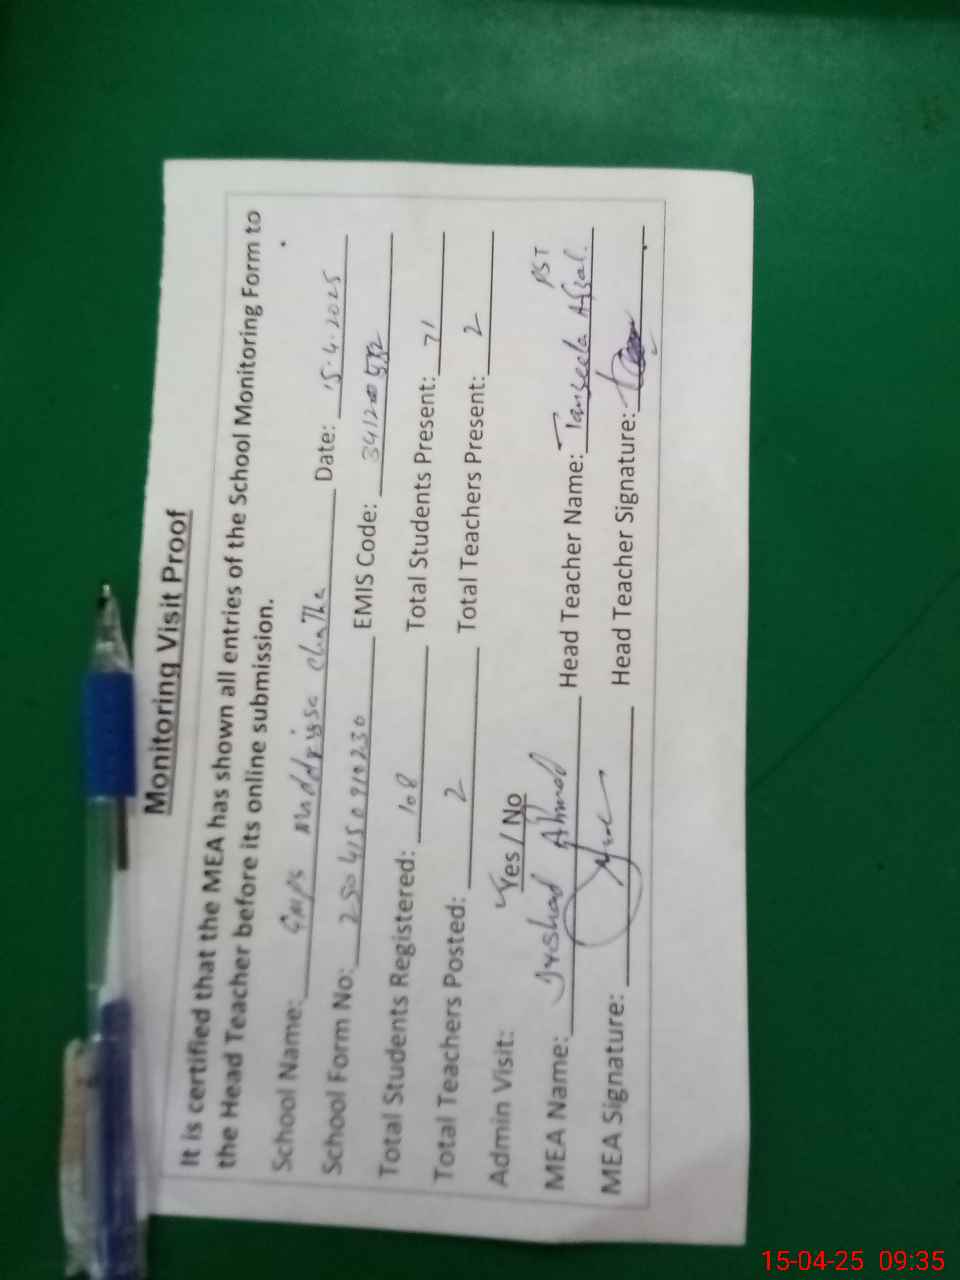 Monitoring Visit Proof
It is certified that the MEA has shown all entries of the School Monitoring Form to
the Head Teacher before its online submission.
School Name: GMPS chatha Date: 15.4.2025
School Form No: 2504150910230 EMIS Code:
Total Students Registered: 108 Total Students Present: 71
Total Teachers Posted: 2 Total Teachers Present: 2
Admin Visit: Yes / No
PST
MEA Name: Irshad Ahmed Head Teacher Name: Tanzeela Afzal.
MEA Signature: Head Teacher Signature:
15-04-25 09:35